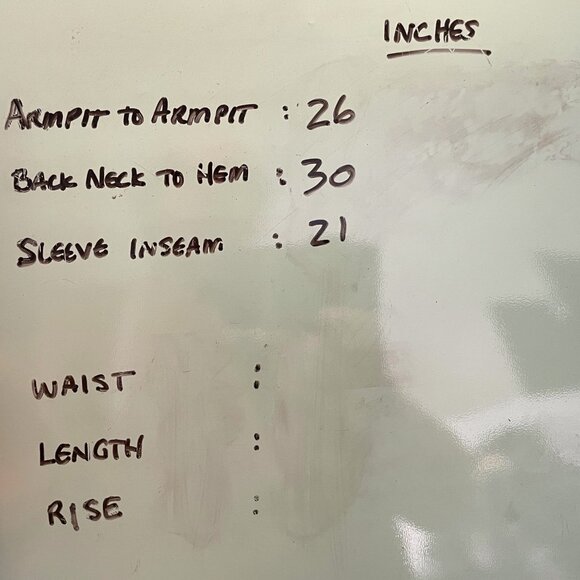 INCHES
ARMPIT TO ARMPIT : 26
BACK NECK TO HEM : 30
SLEEVE INSEAM : 21
WAIST :
LENGTH :
RISE :